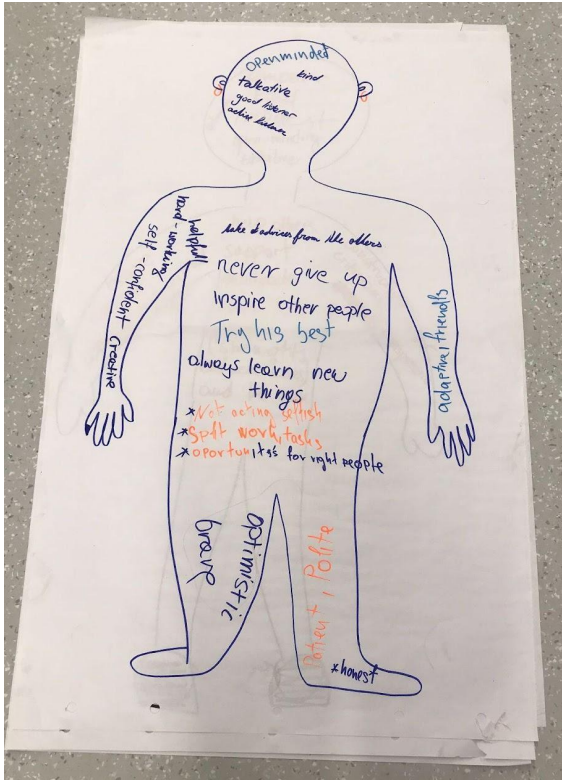 openminded
kind
talkative
good listener
active listener
helpful
hard-working
self-confident
creative
take advices from the others
never give up
Inspire other people
Try his best
always learn new
things
*Not acting selfish
*Split work, tasks
*oportunity's for right people
adaptive, friendly
brave
optimistic
Patient, Polite
*honest